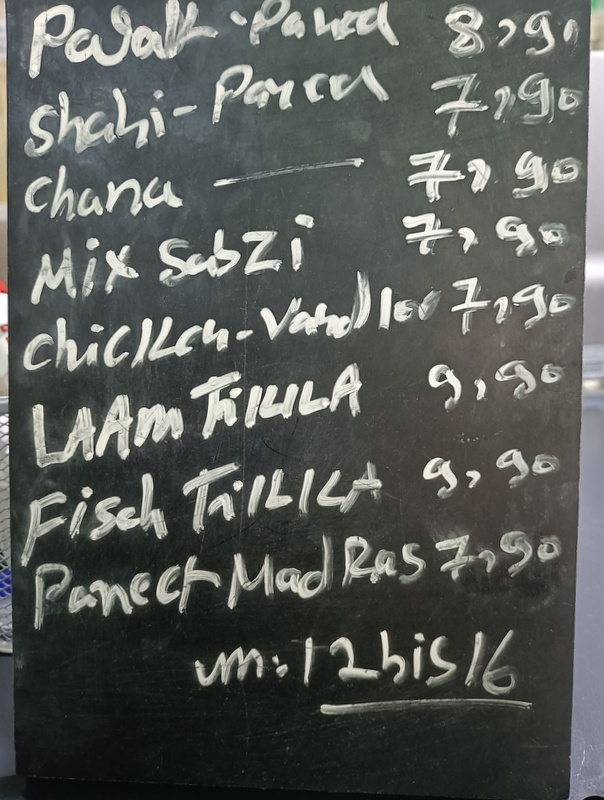 Palak-Paneer 8,90
Shahi-Paneer 7,90
Chana 7,90
Mix SabZi 7,90
chicken- 7,90
LAAm TiKKA 9,90
Fisch TiKKA 9,90
Paneer MadRas 7,90
um: 12bis16